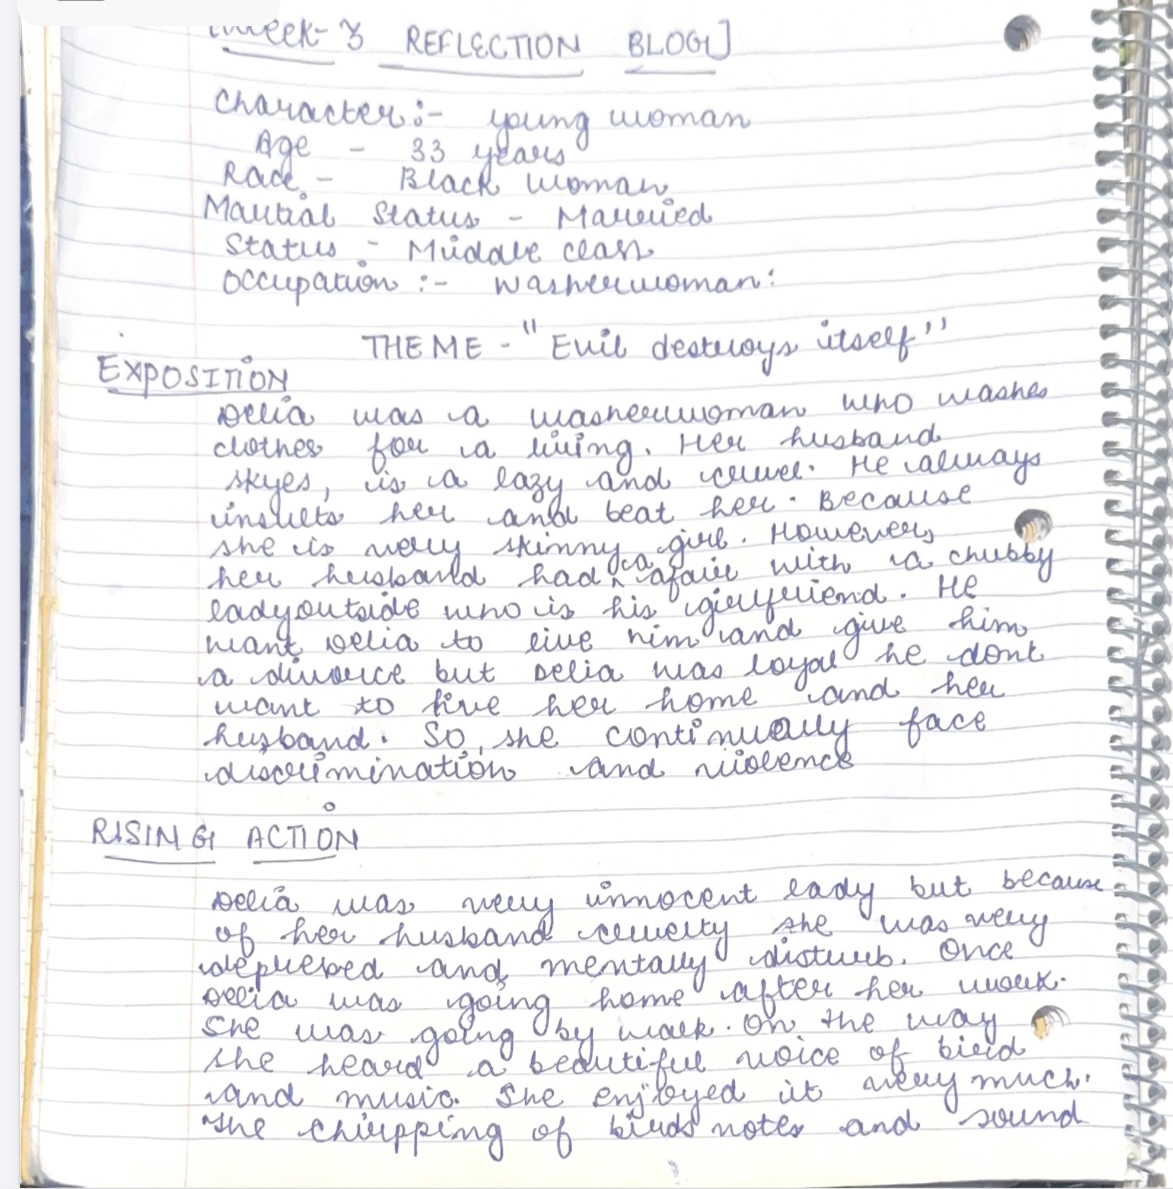 [Week-3 REFLECTION BLOG]
Character:- young woman
Age - 33 years
Race - Black woman
Maritial Status - Married
Status - Middle class
Occupation :- washerwoman:
THEME - "Evil destroys itself"
EXPOSITION
Delia was a washerwoman who washes
clothes for a living. Her husband
skyes, is a lazy and cruel. He always
insults her and beat her. Because
she is very skinny girl. However,
her husband had a afair with a chubby
lady outside who is his girlfriend. He
want Delia to live him and give him
a divorce but Delia was loyal he dont
want to live her home and her
husband. So, she continually face
discrimination and violence
RISING ACTION
Delia was very innocent lady but because
of her husband cruelty she was very
depressed and mentally disturb. Once
Delia was going home after her work.
She was going by walk. On the way
she heard a beautiful voice of bird
and music. She enjoyed it very much.
The chirpping of birds notes and sound